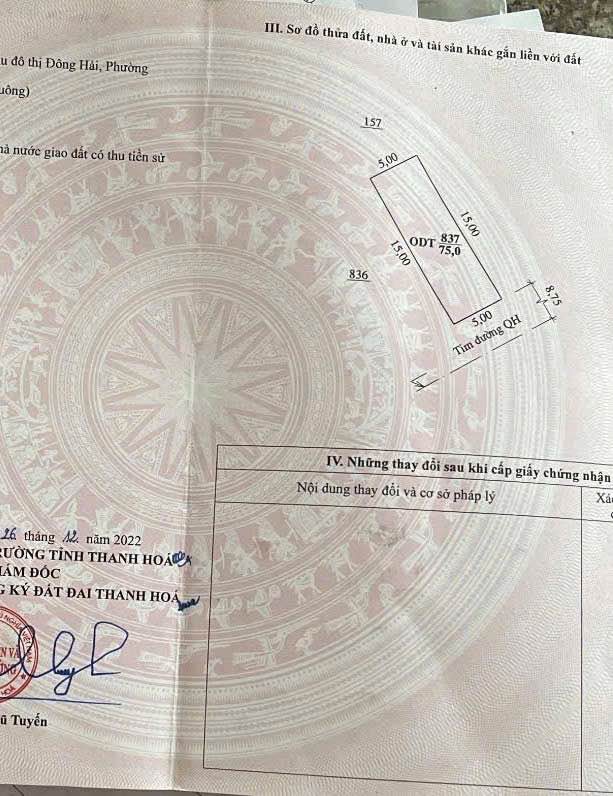 III. Sơ đồ thửa đất, nhà ở và tài sản khác gắn liền với đất
u đô thị Đông Hải, Phường
uông)
hà nước giao đất có thu tiền sử
157
5,00
15,00
15,00
ODT 837
75,0
836
8,75
5,00
Tim đường QH
IV. Những thay đổi sau khi cấp giấy chứng nhận
Nội dung thay đổi và cơ sở pháp lý
Xá
26 tháng 12 năm 2022
RƯỜNG TỈNH THANH HOÁ
IÁM ĐỐC
G KÝ ĐẤT ĐAI THANH HOÁ
ũ Tuyến